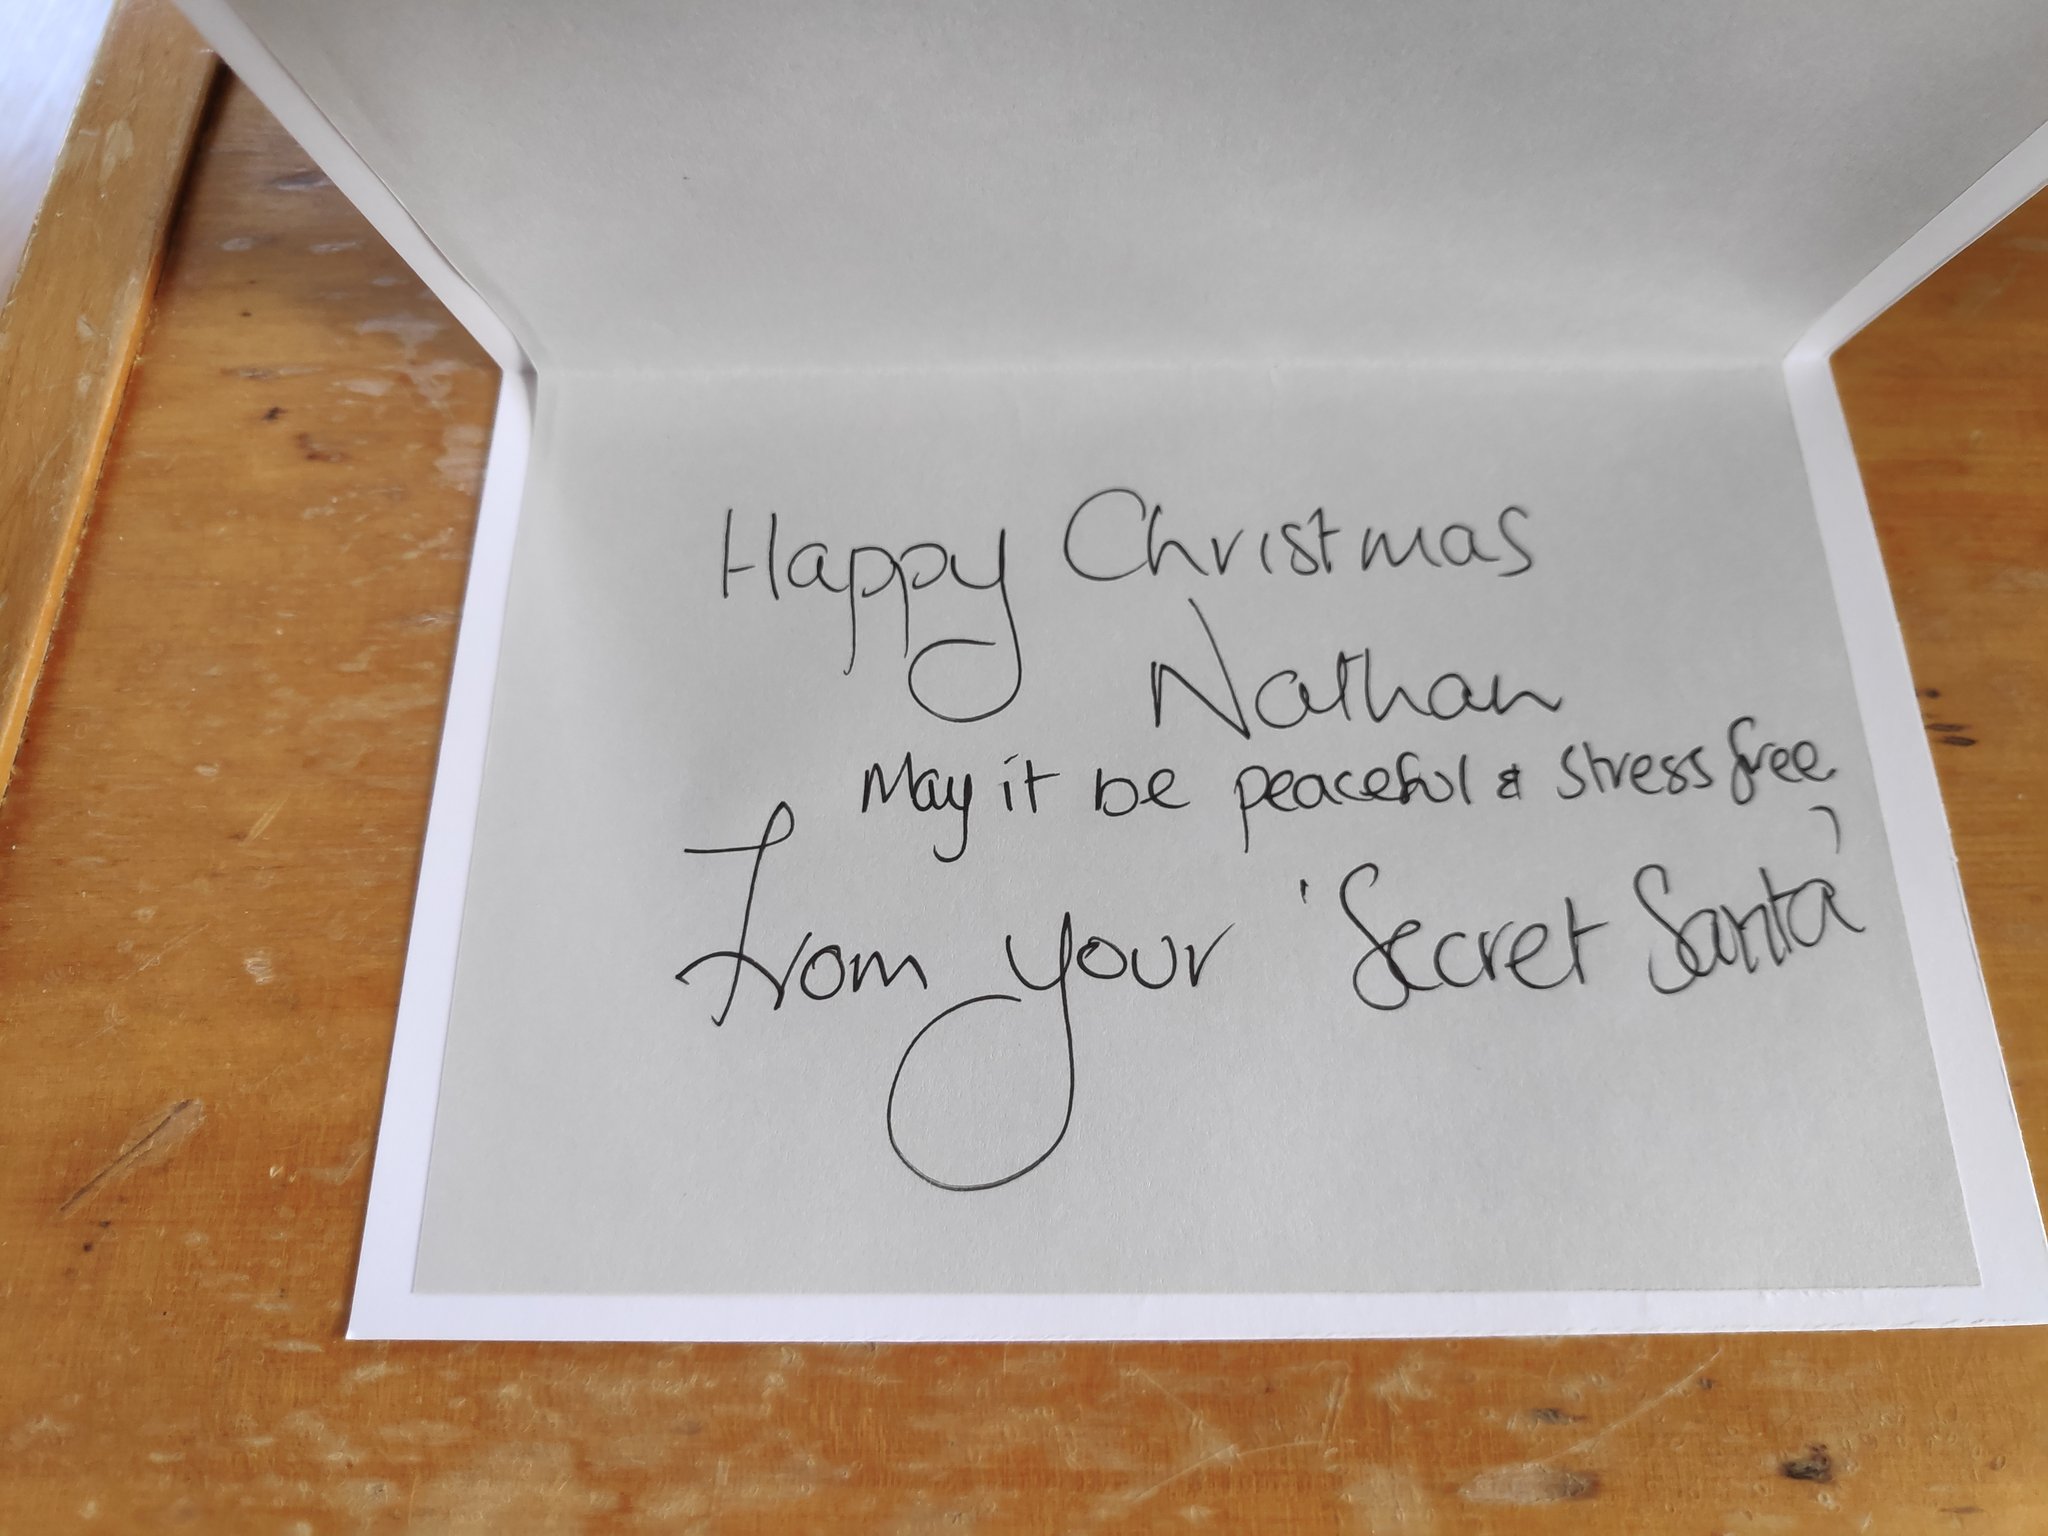 Happy Christmas
Nathan
May it be peaceful & stress free
From your 'Secret Santa'